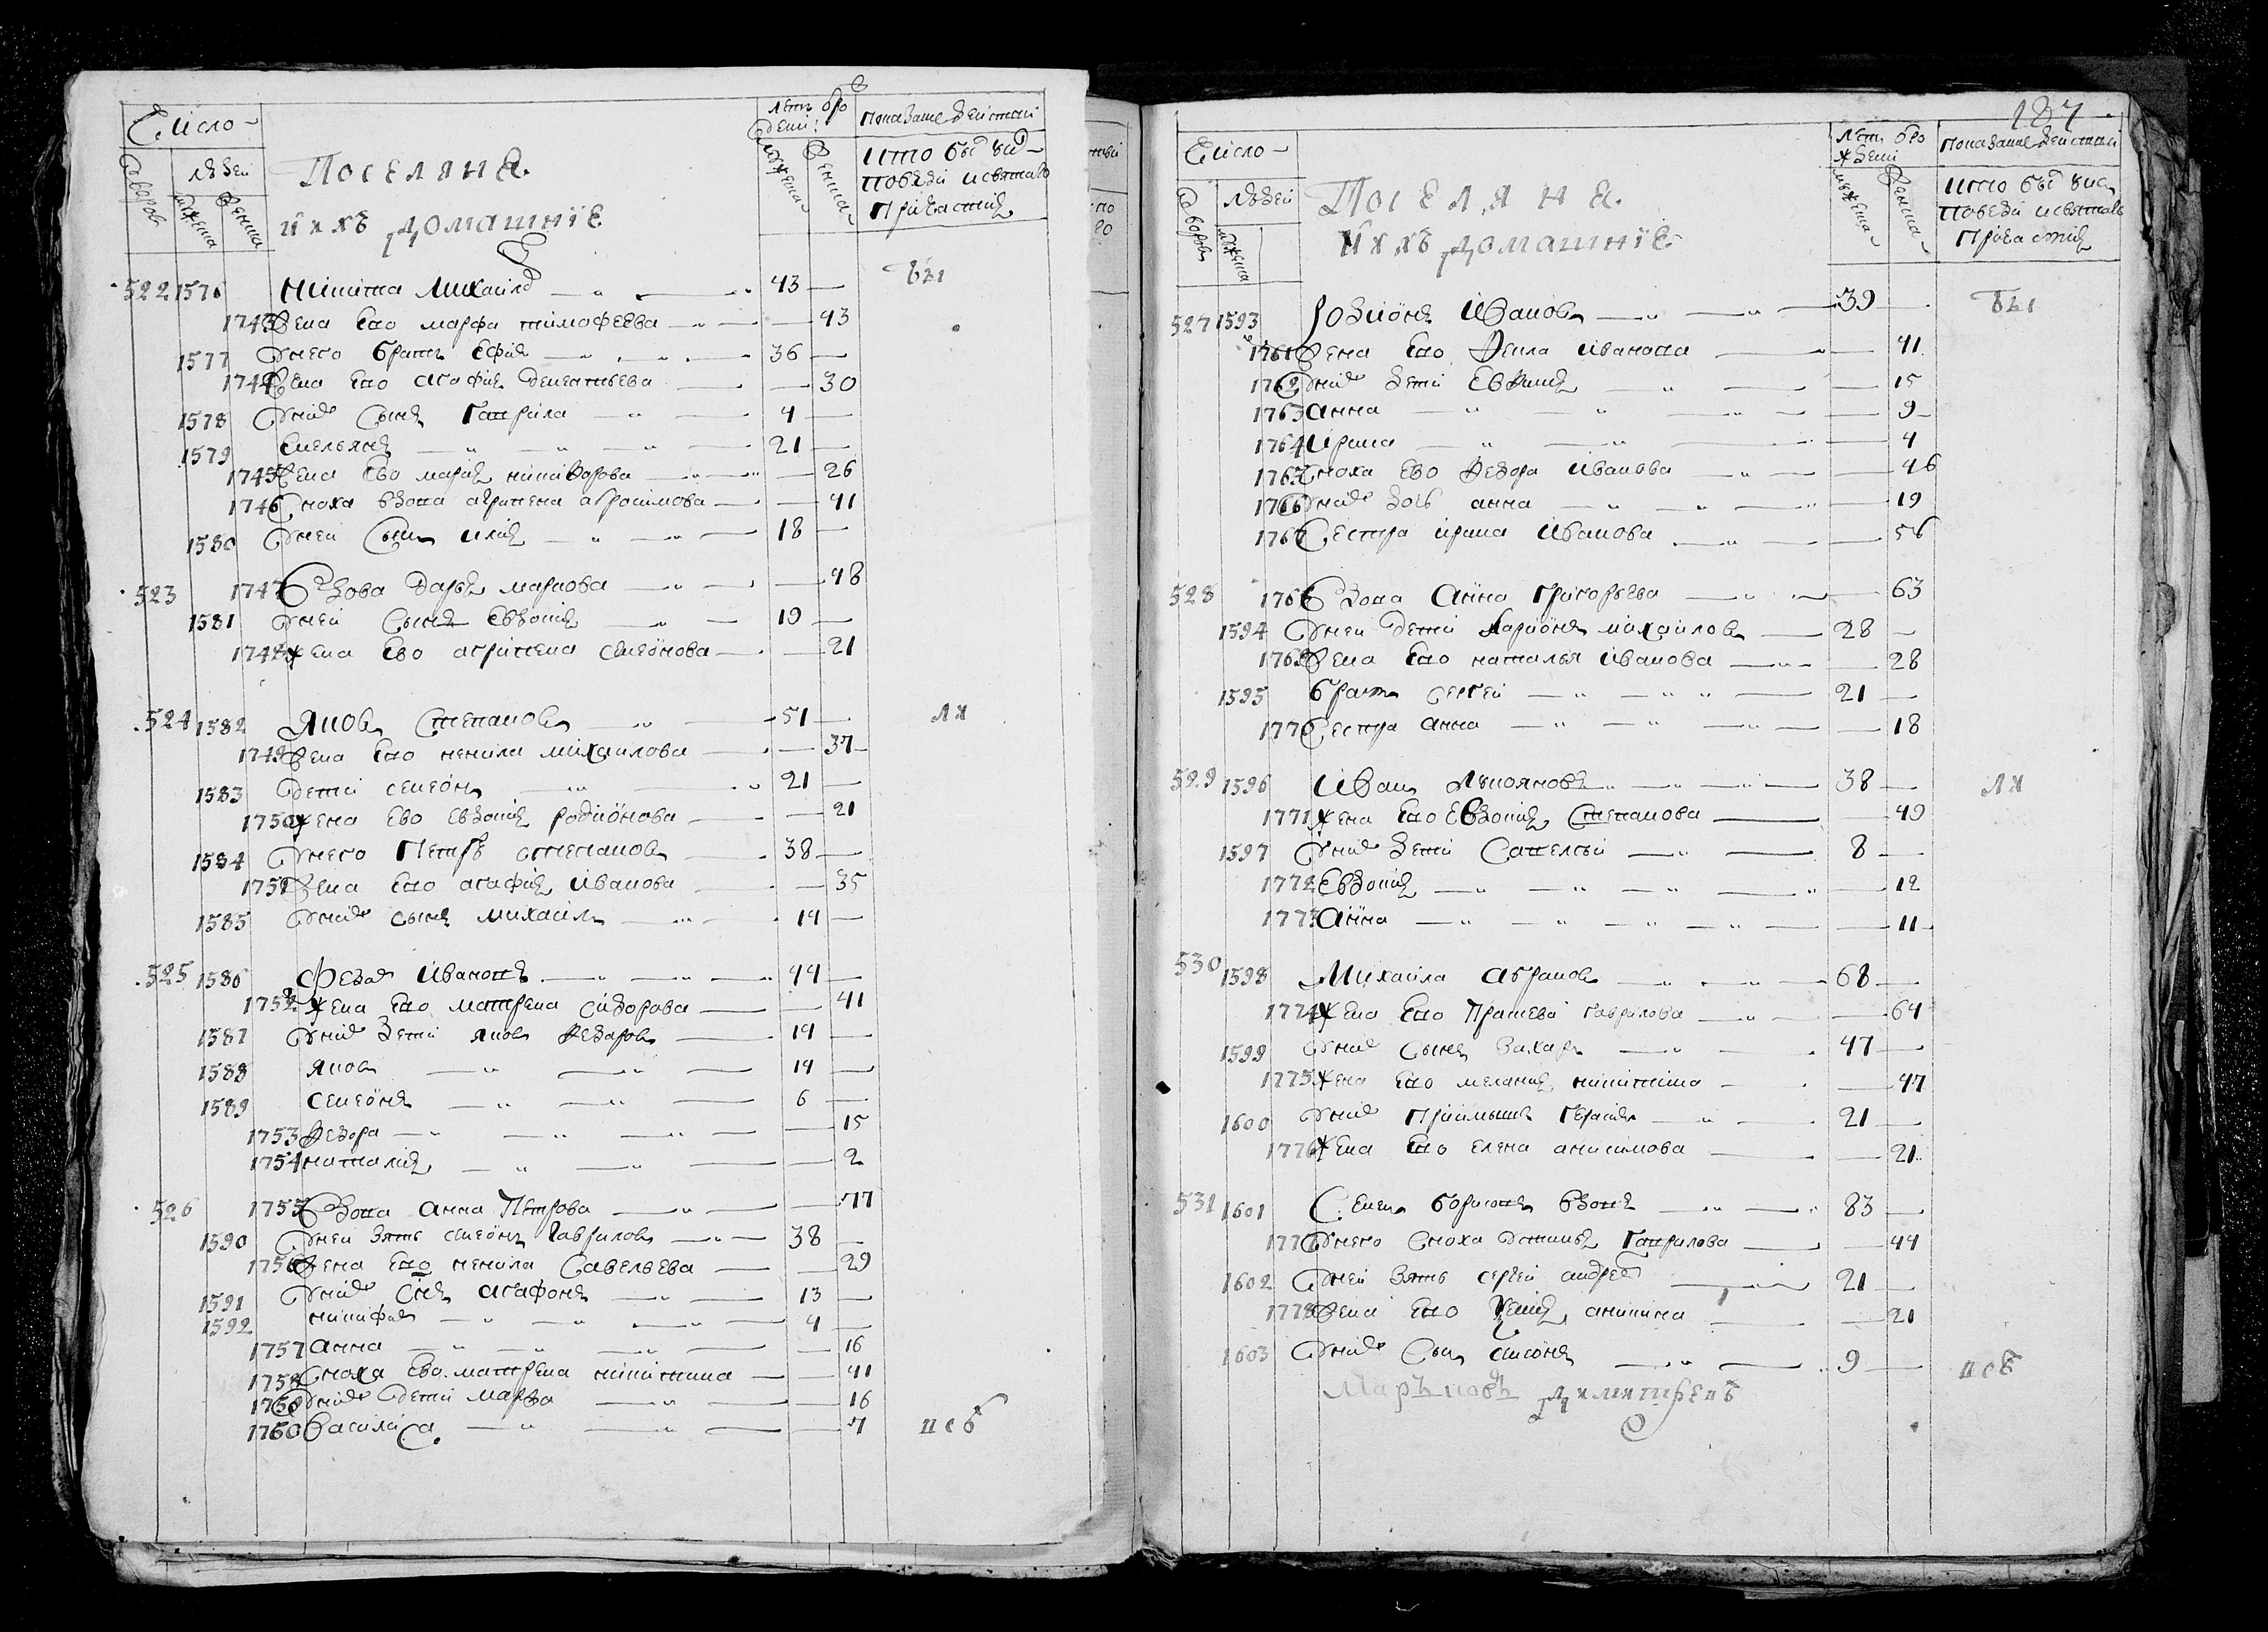 Число
Людей
Поселяне
и ихъ домашнїе
Дворовъ
мужеска
женска
Показание действий
кто был у ис
поведи и святаго
Причастия
бы
522 1576 Никита Михаилов 43
1743 Жена Ево марфа тимофеева 43
1577 У него братъ Ефим 36
1744 Жена Ево агафия Дементьева 30
1578 У них Сынъ Гаврила 4
1579 Емельянъ 21
1745 Жена Ево мария никифорова 26
1746 Сноха вдова агрипена абросимова 41
1580 У ней Сынъ илия 18
523 1747 Вдова Дарья маркова 48
1581 У ней Сынъ Евдоким 19
1748 жена Ево агрипена семеонова 21
524 1582 Яковъ Степановъ 51
ля
1749 Жена Ево ненила михаилова 37
1583 Дети семеонъ 21
1750 жена Ево Евдокия родионова 21
1584 У него Петръ степановъ 38
1751 Жена Ево агафия иванова 35
1585 У них сынъ михаилъ 14
525 1586 Федор Ивановъ 44
1752 жена Ево матрена сидорова 41
1587 У них дети яковъ 14
1588 яковъ 14
1589 семеонъ 6
1753 федора 15
1754 наталия 2
526 1755 Вдова анна Петрова 77
1590 У ней зять семеонъ Гавриловъ 38
1756 Жена Ево ненила Савельева 29
1591 У них Снъ агафонъ 13
1592 никифор 4
1757 анна 16
1758 Сноха Ево матрена никитина 41
1759 У них дети марфа 16
1760 Василиса 7
псб
187
Число
Людей
Поселяне
и ихъ домашнїе
Дворовъ
мужеска
женска
Показание действий
кто был у ис
поведи и святаго
Причастия
бы
527 1593 Родионъ Ивановъ 39
1761 Жена Ево Фекла иванова 41
1762 У них дети 15
1763 анна 9
1764 ирина 4
1765 Сноха Ево федора иванова 46
1766 У них дочь анна 19
1767 Сестра ирина иванова 56
528 1768 Вдова Анна Григорьева 63
1594 У ней дети Ларионъ михаиловъ 28
1769 Жена Ево наталья иванова 28
1595 братъ сергей 21
1770 Сестра анна 18
529 1596 Иванъ Лукояновъ 38
ля
1771 жена Ево Евдокия Степанова 49
1597 У них дети Савелий 8
1772 Евдокия 12
1773 Анна 11
530 1598 Михаила абрамовъ 68
1774 жена Ево Прасковия гаврилова 64
1599 У них Сынъ Захаръ 47
1775 жена Ево мелания никитина 47
1600 У них Приймышъ 21
1776 жена Ево елена анисимова 21
531 1601 Семенъ борисовъ вдовъ 83
1777 У него Сноха Гаврилова 44
1602 У ней зять сергей андреев 21
1778 Жена Ево Ксения аникина 21
1603 У них Сынъ семеонъ 9
псб